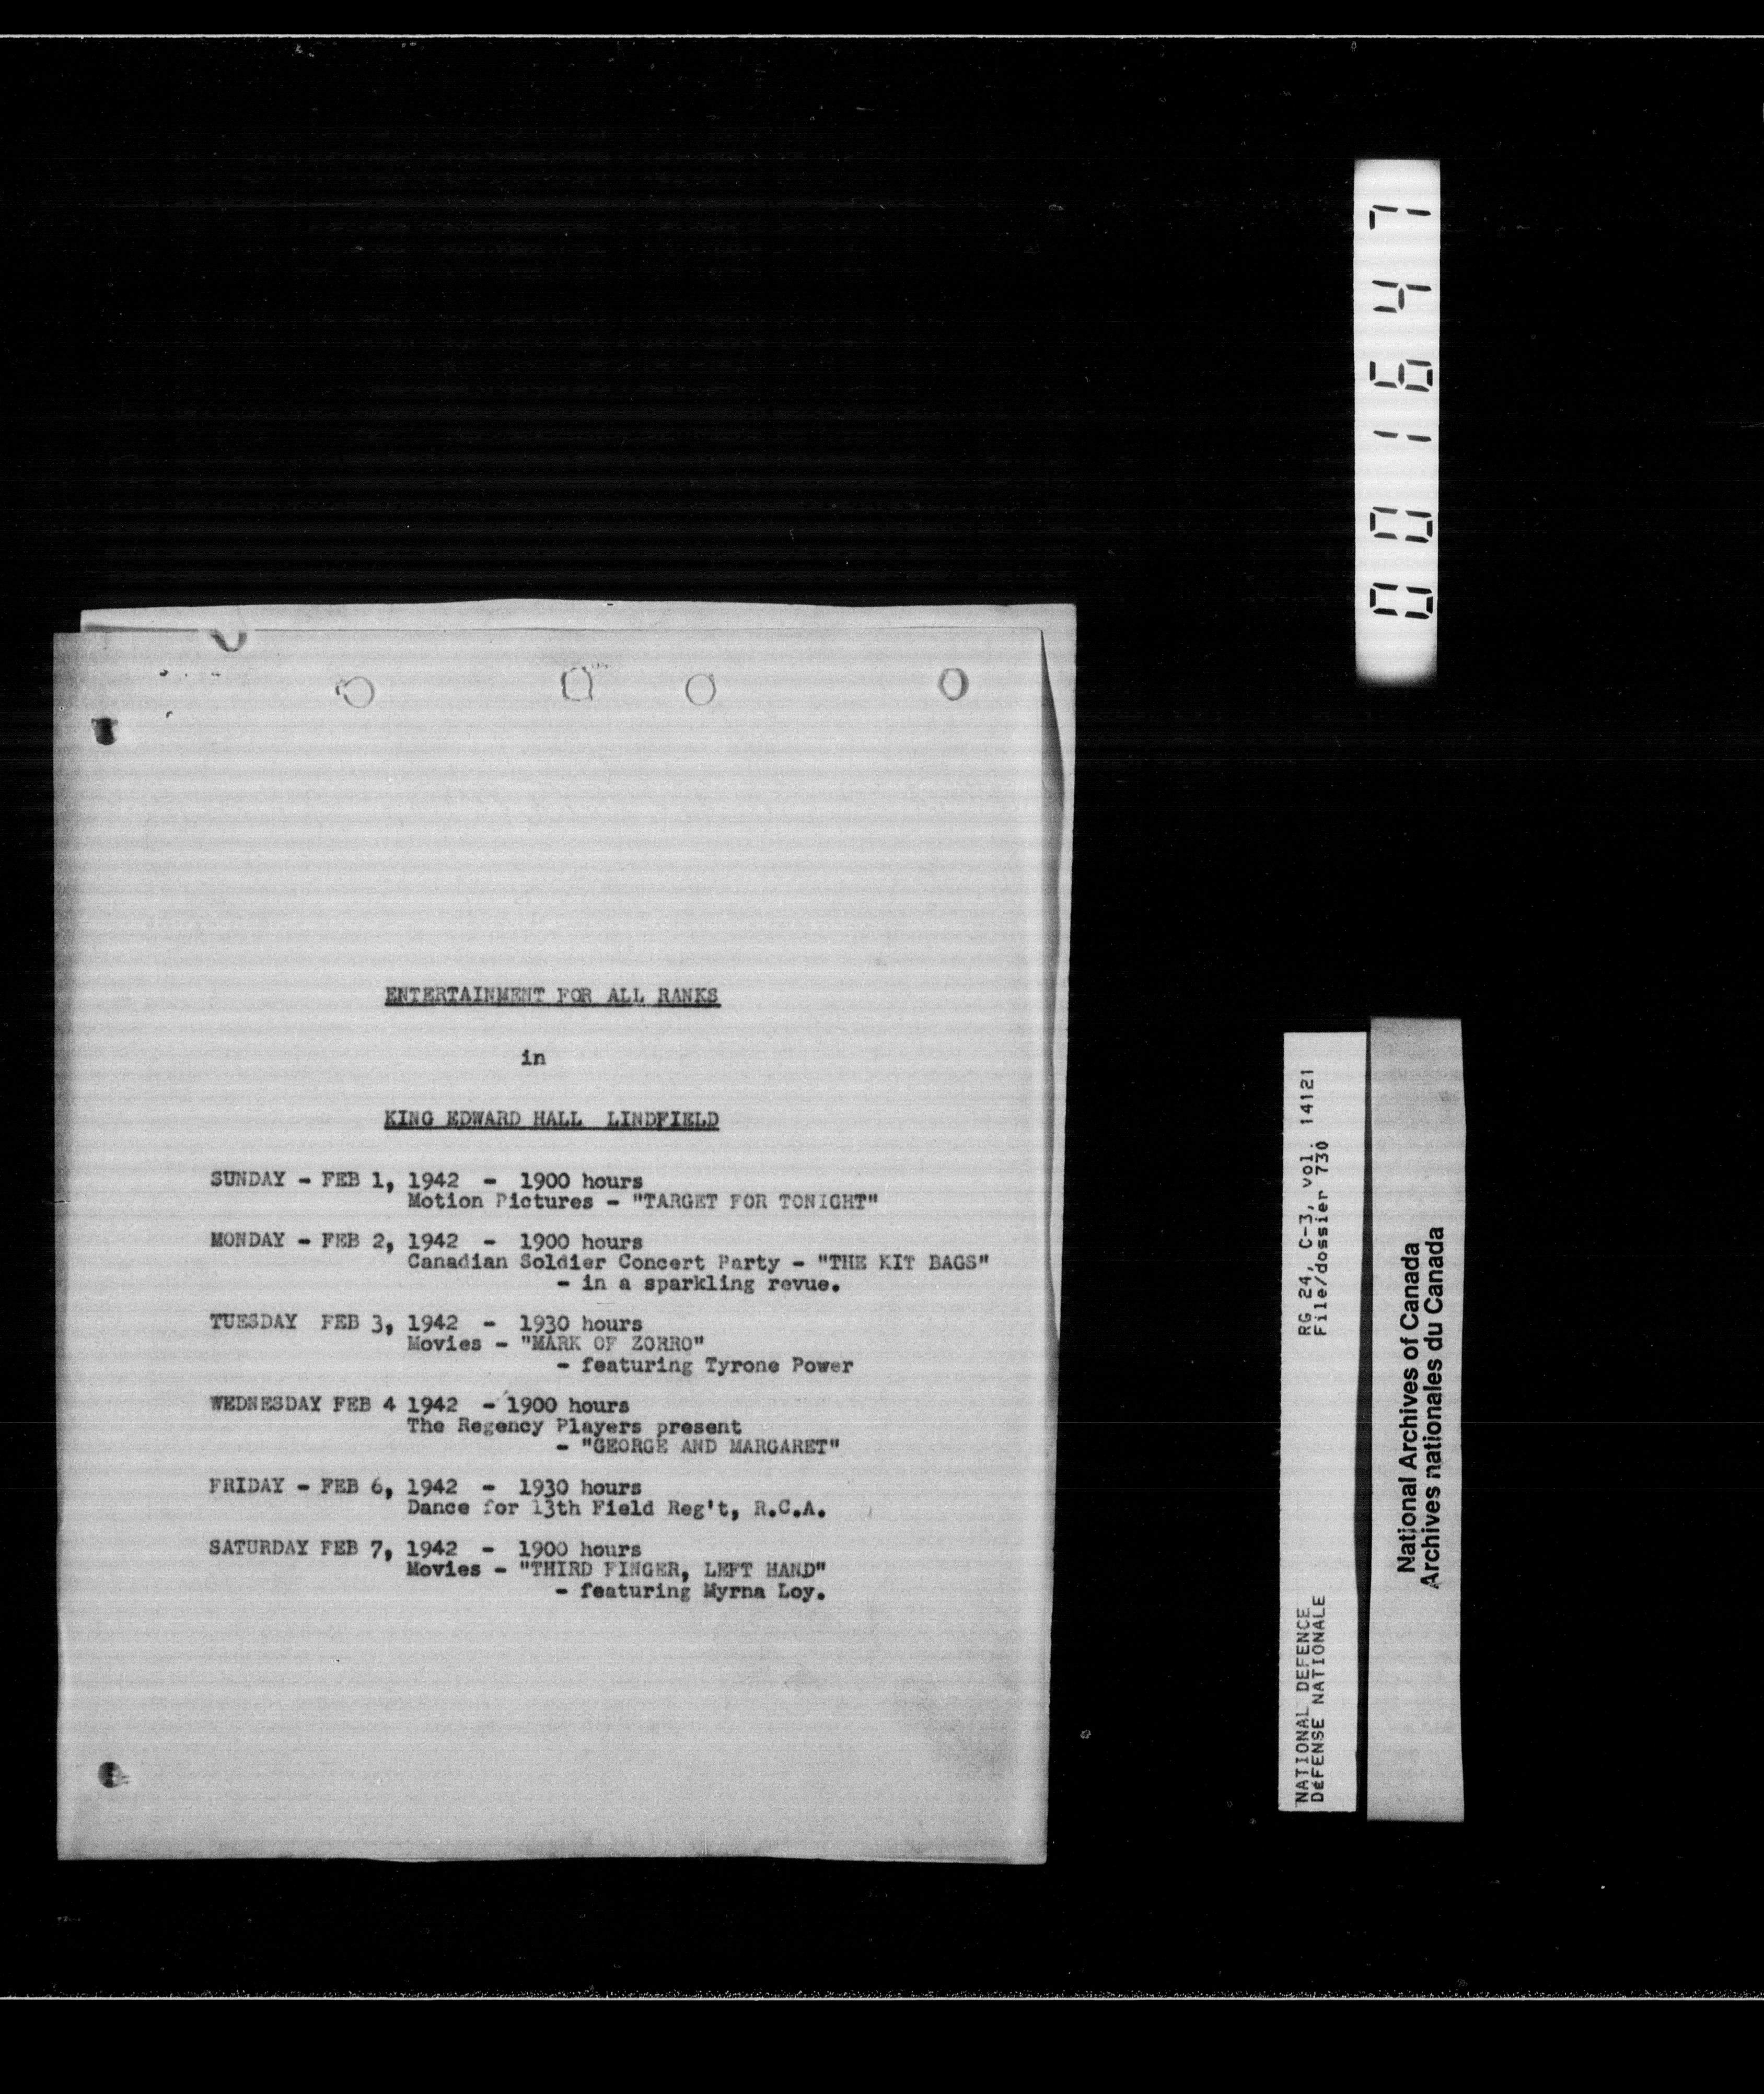 ENTERTAINMENT FOR ALL RANKS
in
KING EDWARD HALL LINDFIELD
SUNDAY - FEB 1, 1942 - 1900 hours
Motion Pictures - "TARGET FOR TONIGHT"
MONDAY - FEB 2, 1942 - 1900 hours
Canadian Soldier Concert Party - "THE KIT BAGS"
- in a sparkling revue.
TUESDAY FEB 3, 1942 - 1930 hours
Movies - "MARK OF ZORRO"
- featuring Tyrone Power
WEDNESDAY FEB 4 1942 - 1900 hours
The Regency Players present
- "GEORGE AND MARGARET"
FRIDAY - FEB 6, 1942 - 1930 hours
Dance for 13th Field Reg't, R.C.A.
SATURDAY FEB 7, 1942 - 1900 hours
Movies - "THIRD FINGER, LEFT HAND"
- featuring Myrna Loy.
001647
NATIONAL DEFENCE RG 24, C-3, vol. 14121
DéFENSE NATIONALE File/dossier 730
National Archives of Canada
Archives nationales du Canada